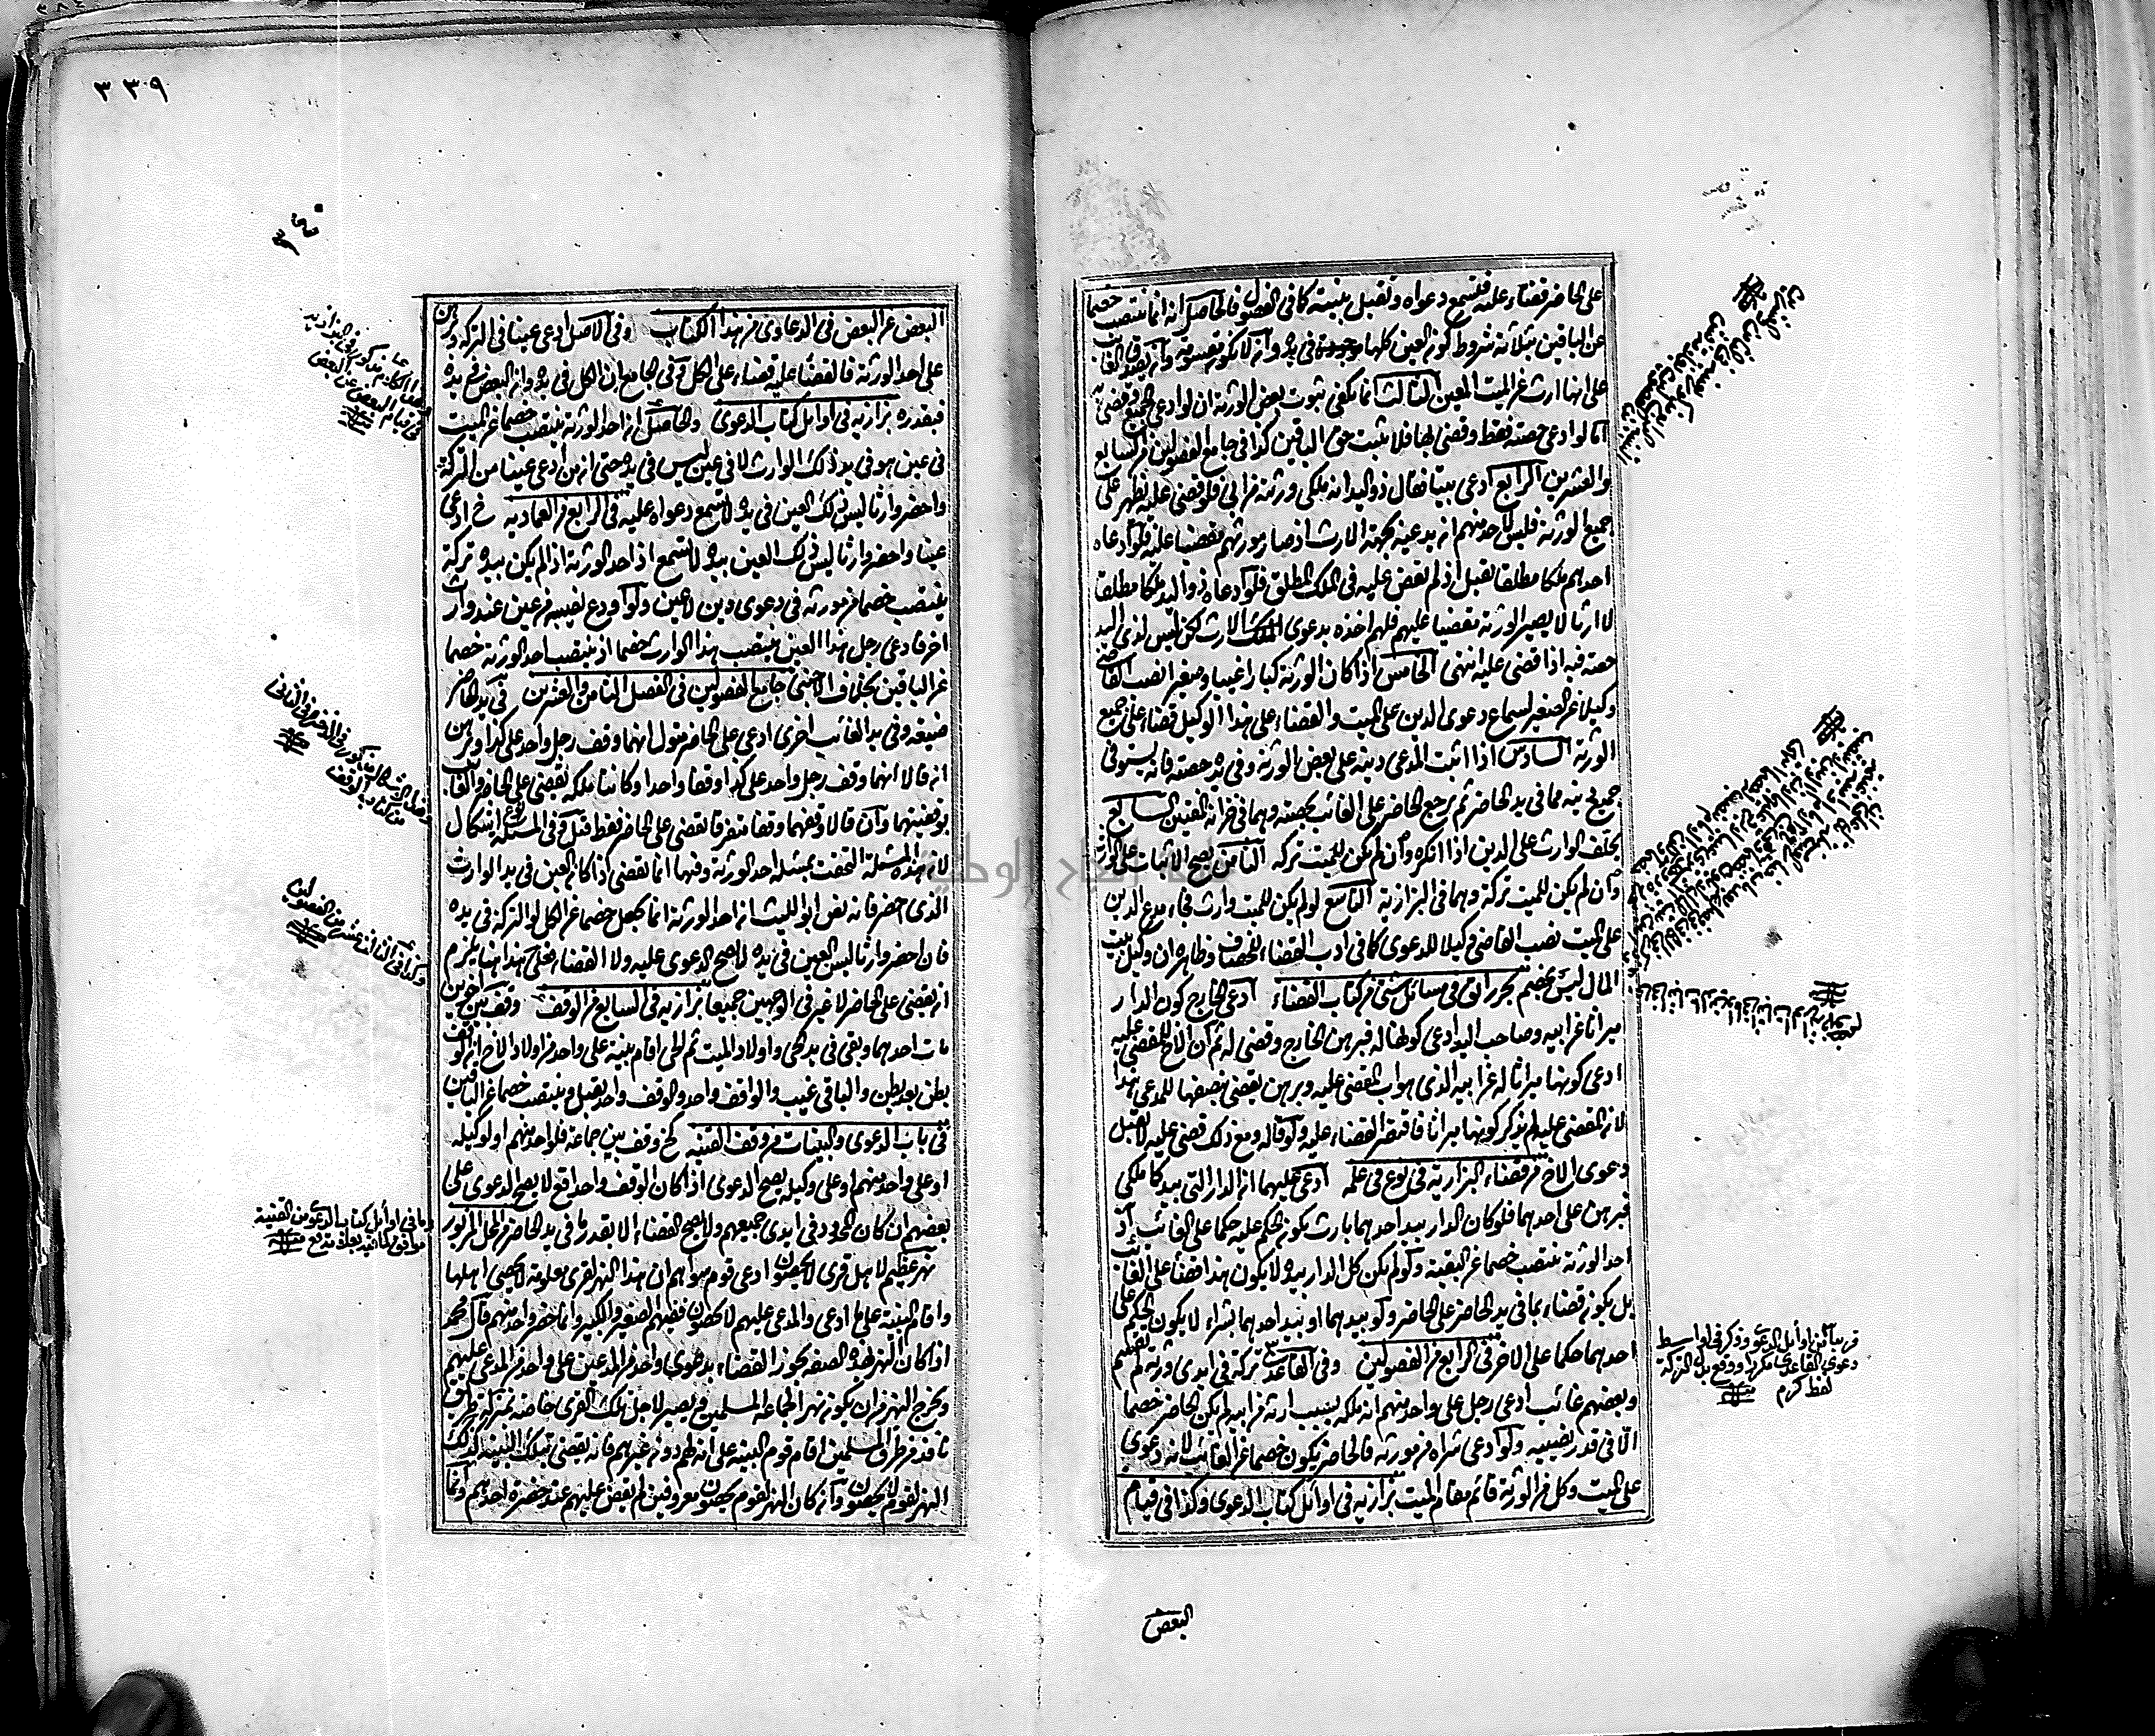 على الحاضر قضاء عليه فتسمع دعواه وتقبل بينته كما في الفصول فالحاصل انه انما ينتصب خصما
عن الباقين بثلاثة شروط كون العين كلها موجودة في يده وان لا تكون مقسومة وان يصدق الغائب
على انها ارث عن الميت المعين الثالث انما يكفي ثبوت بعض الورثة ان لو ادعى الجميع وقضي به
اما لو ادعى حصته فقط وقضي بها فلا يثبت حق الباقين كذا في جامع الفصولين من السابع
والعشرين الرابع ادعى بيتا فقال ذو اليد انه ملكي ورثته من ابي فلو قضي عليه يظهر على
جميع الورثة فليس لاحد منهم ان يدعيه بجهة الارث اذ صار مورثهم مقضيا عليه فلو ادعاه
احدهم ملكا مطلقا تقبل اذ لم يقض عليه في الملك المطلق فلو ادعاه ذو اليد ملكا مطلقا
لا ارثا لا يصير الورثة مقضيا عليهم فلهم اخذه بدعوى الملك الارث لكن ليس لذي اليد
حصة فيه اذا قضي عليه انتهى الخامس اذا كان الورثة كبارا غيبا وصغير انصب القاضي
وكيلا عن الصغير لسماع دعوى الدين على الميت والقضاء على هذا الوكيل قضاء على جميع
الورثة السادس اذا اثبت المدعي دينه على بعض الورثة وفي يده حصته فانه يستوفي
جميع دينه مما في يد الحاضر ثم يرجع الحاضر على الغائب بحصته وهما في خزانة المفتين السابع
يحلف الوارث على الدين اذا انكره وان لم يكن للميت تركة الثامن يصح الاثبات على الوارث
وان لم يكن للميت تركة وهما في البزازية التاسع لو لم يكن للميت وارث فجاء مدع الدين
على الميت نصب القاضي وكيلا للدعوى كما في ادب القضاء للخصاف وظاهره ان وكيل بيت
المال ليس بخصم بحر رائق في مسائل شتى من كتاب القضاء ادعى الخارج كون الدار
ميراثا عن ابيه وصاحب اليد ادعى كونها له فبرهن الخارج وقضي له ثم ان الاخ للمقضي عليه
ادعى كونها ميراثا له عن ابيه الذي هو اب المقضي عليه وبرهن يقضى بنصفها للمدعي هذا
لان المقضي عليه لم يذكر كونها ميراثا فاقتصر القضاء عليه ولو قاله ومع ذلك قضي عليه لا تقبل
دعوى الاخ من قضاء البزازية في نوع في علمه ادعى عليهما ان الدار التي بيدكما ملكي
فبرهن على احدهما فلو كان الدار بيد احدهما بارث يكون الحكم عليه حكما على الغائب اذ
احد الورثة ينتصب خصما عن البقية ولو لم يكن كل الدار بيده لا يكون هذا قضاء على الغائب
بل يكون قضاء بما في يد الحاضر على الحاضر ولو بيدهما او بيد احدهما بشراء لا يكون الحكم على
احدهما حكما على الاخر في الرابع من الفصولين وفي القاعدي تركة في ايدي ورثة لم تقسم
وبعضهم غائب ادعى رجل على واحد منهم انه ملكه بسبب ارثه من ابيه لم يكن الحاضر خصما
الا في قدر نصيبه ولو ادعى شراه من مورثه فالحاضر يكون خصما عن الغائب لانه دعوى
على الميت وكل من الورثة قائم مقام الميت بزازية في اوائل كتاب الدعوى وكذا في قيام
البعض
قريبا من اوائل الدعوى وذكر في اواسط
دعوى القاعدي مكررا ووقع بدل التركة
لفظ كرم
٣٣٩
٣٤٠
البعض عن البعض في الدعاوى من هذا الكتاب وفي الاصل ادعى عينا في التركة وبرهن
على احد الورثة فالقضاء عليه قضاء على الكل وفي الجامع ان الكل في يده وان البعض في يده
فبقدره بزازية في اوايل كتاب الدعوى والحاصل ان احد الورثة ينتصب خصما عن الميت
في عين هو في يد ذلك الوارث لا في عين ليس في يده حتى ان من ادعى عينا من التركة
واحضر وارثا ليس ذلك العين في يده لا تسمع دعواه عليه في الرابع من العمادية خ ادعى
عينا واحضر وارثا ليس ذلك العين بيده لا تسمع اذ احد الورثة اذا لم يكن بيده تركة
ينتصب خصما من مورثه في دعوى دين لا عين ولو اودع نصيبه من عين عند وارث
اخر فادعى رجل هذا العين ينتصب هذا الوارث خصما اذ ينتصب احد الورثة خصما
عن الباقين بخلاف الاجنبي جامع الفصولين في الفصل الثامن والعشرين في يد الحاضر
ضيعة وفي يد الغائب اخرى ادعى على الحاضر متول انهما وقف رجل واحد على كذا وبرهن
انه قالا انهما وقف رجل واحد على كذا وقفا واحدا وكانتا ملكه يقضى على الحاضر والغائب
بوقفيتهما وان قالا وقفهما وقفا متفرقا يقضى على الحاضر فقط قيل وفي المسئلة نوع اشكال
لان هذه المسئلة التحقت بمسئلة احد الورثة وفيها انما يقضى اذا كان العين في يد الوارث
الذي احضر فانه نص ابو الليث ان احد الورثة انما يجعل خصما عن الكل لو التركة في يده
فان احضر وارثا ليس العين في يده لا يصح الدعوى عليه ولا القضاء فعلى هذا هنا يلزم
ان يقضى على الحاضر لا غير في الوجهين جميعا بزازية في السابع من الوقف وقف بين اخوين
مات احدهما وبقي في يد الحي واولاد الميت ثم الحي اقام بينة على واحد من اولاد الاخ ان الوقف
بطن بعد بطن والباقي غيب والواقف واحد والوقف واحد يقبل وينتصب خصما عن الباقين
في باب الدعوى والبينات من وقف القنية كخ وقف بين جماعة فلو احد منهم او لوكيله
او على واحد منهم او على وكيله يصح الدعوى اذا كان الوقف واحد اقع لا يصح الدعوى على
بعضهم ان كان المحدود في ايدي جميعهم ولا يصح القضاء الا بقدر ما في يد الحاضر من المحل المزبور
نهر عظيم لاهل قرى لا يحصون ادعى قوم سواهم ان هذا النهر لقرى معلومة لا يحصى اهلها
واقام البينة على ما ادعى والمدعى عليهم لا يحصون فيهم الصغير والكبير وانما حضر واحد منهم قال محمد
اذا كان النهر لهذه الصفة يجوز القضاء بدعوى واحد من المدعين على واحد من المدعى عليهم
ويخرج النهر من ان يكون نهرا لجماعة المسلمين ويصير لاهل تلك القرى خاصة بمنزلة طريق
نافذ من طرق المسلمين اقام قوم البينة على انه لهم دون غيرهم فانه يقضى بتلك البينة كذلك
النهر لقوم لا يحصون وان كان النهر لقوم يحصون معروفين لم يقض عليهم عند حضرة احدهم وانما
وكذا في الثالث عشر من الفصولين
وما في اوائل كتاب الدعوى من القنية